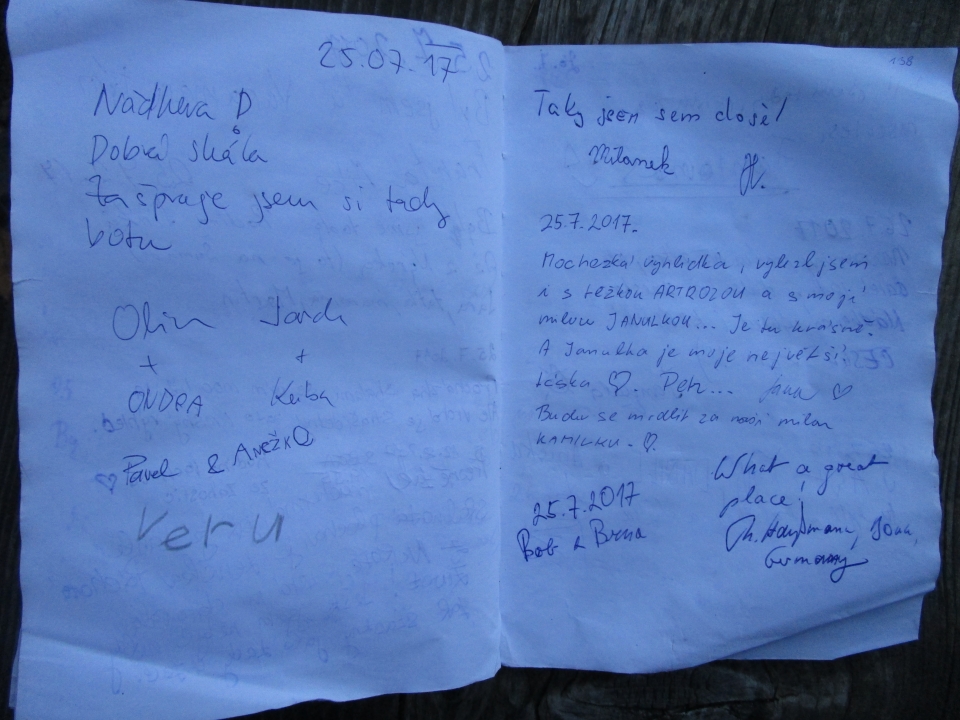 25.07.17
Nádhera :D
Dobrá skála
Zašpraje jsem si tady
botu
Olin Jarda
+ +
ONDRA Kuba
♡ Pavel & Anežka
Veru
138
Taky jsem sem došel
Milanek H.
25.7.2017.
vyhlídka, vylezl jsem
i s těžkou ARTROZOU a s mojí
milou JANULKOU... Je tu krásně.
A Janulka je moje největší
láska ♡. Petr... Jana ♡
Budu se modlit za naši milou
KAMILKU. ♡
What a great
place!
25.7.2017
Bob &
Th. Germany